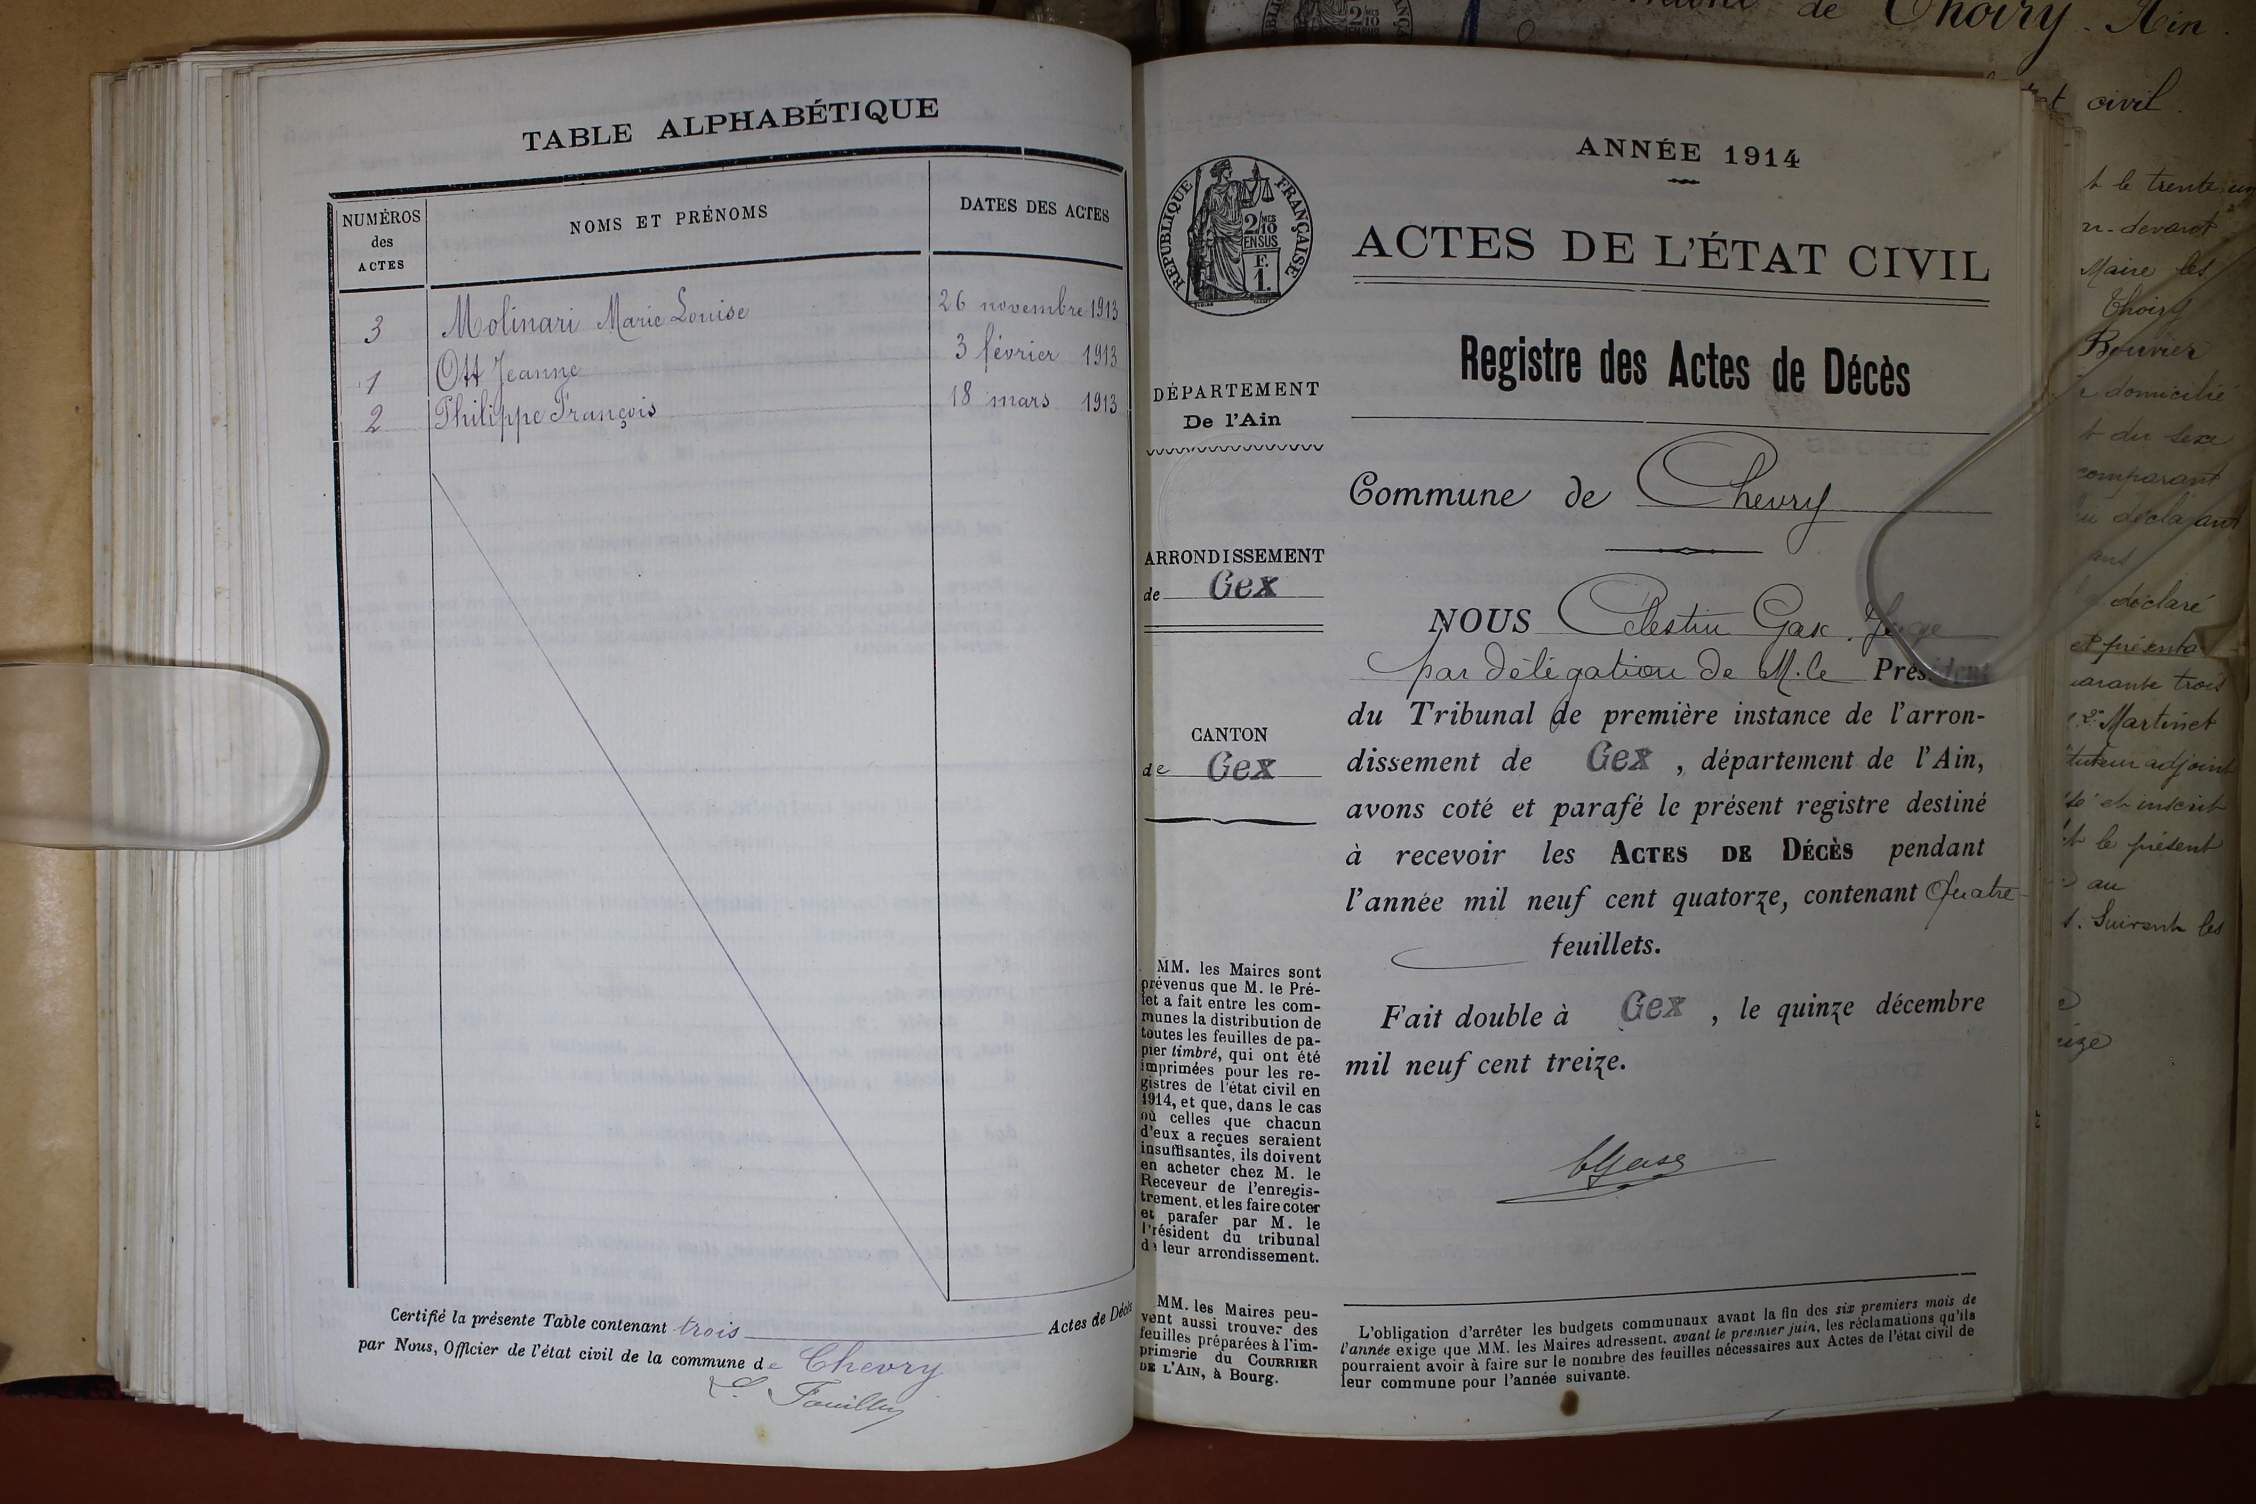 TABLE ALPHABÉTIQUE
NUMÉROS des ACTES
NOMS ET PRÉNOMS
DATES DES ACTES
3 Molinari Marie Louise 26 novembre 1913
1 Ott Jeanne 3 février 1913
2 Philippe François 18 mars 1913
Certifié la présente Table contenant trois Actes de Décès
par Nous, Officier de l'état civil de la commune de Chevry
ANNÉE 1914
RÉPUBLIQUE FRANÇAISE
2/10
MES
EN SUS
F.
1.
ACTES DE L'ÉTAT CIVIL
Registre des Actes de Décès
DÉPARTEMENT
De l'Ain
Commune de Chevry
ARRONDISSEMENT
de Gex
CANTON
de Gex
NOUS Célestin Gax. Juge
par délégation de M. le Président
du Tribunal de première instance de l'arron-
dissement de Gex, département de l'Ain,
avons coté et parafé le présent registre destiné
à recevoir les ACTES DE DÉCÈS pendant
l'année mil neuf cent quatorze, contenant Quatre
feuillets.
Fait double à Gex, le quinze décembre
mil neuf cent treize.
MM. les Maires sont
prévenus que M. le Pré-
fet a fait entre les com-
munes la distribution de
toutes les feuilles de pa-
pier timbré, qui ont été
imprimées pour les re-
gistres de l'état civil en
1914, et que, dans le cas
où celles que chacun
d'eux a reçues seraient
insuffisantes, ils doivent
en acheter chez M. le
Receveur de l'enregis-
trement, et les faire coter
et parafer par M. le
Président du tribunal
de leur arrondissement.
MM. les Maires peu-
vent aussi trouver des
feuilles préparées à l'im-
primerie du COURRIER
DE L'AIN, à Bourg.
L'obligation d'arrêter les budgets communaux avant la fin des six premiers mois de
l'année exige que MM. les Maires adressent, avant le premier juin, les réclamations qu'ils
pourraient avoir à faire sur le nombre des feuilles nécessaires aux Actes de l'état civil de
leur commune pour l'année suivante.
de Thoiry - Ain.
civil.
le trente un
devant
Maire les
Thoiry
Bouvier
domicilié
du sexe
comparant
déclarant
ans
déclaré
et présenta
trois
Martinet
adjoint
et inscrit
le présent
au
Suivent les